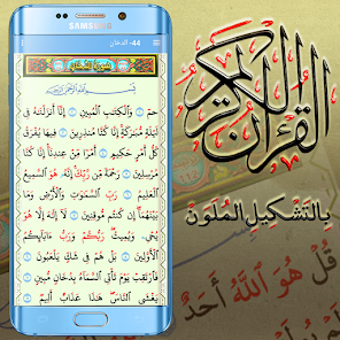 SAMSUNG
44- الدخان
سورة الدخان
بِسْمِ اللَّهِ الرَّحْمَٰنِ الرَّحِيمِ
حمٓ ۝ وَٱلْكِتَٰبِ ٱلْمُبِينِ ۝ إِنَّآ أَنزَلْنَٰهُ فِى
لَيْلَةٍ مُّبَٰرَكَةٍ إِنَّا كُنَّا مُنذِرِينَ ۝ فِيهَا يُفْرَقُ
كُلُّ أَمْرٍ حَكِيمٍ ۝ أَمْرًا مِّنْ عِندِنَآ إِنَّا كُنَّا
مُرْسِلِينَ ۝ رَحْمَةً مِّن رَّبِّكَ إِنَّهُۥ هُوَ ٱلسَّمِيعُ
ٱلْعَلِيمُ ۝ رَبِّ ٱلسَّمَٰوَٰتِ وَٱلْأَرْضِ وَمَا
بَيْنَهُمَآ إِن كُنتُم مُّوقِنِينَ ۝ لَآ إِلَٰهَ إِلَّا هُوَ
يُحْىِۦ وَيُمِيتُ رَبُّكُمْ وَرَبُّ ءَابَآئِكُمُ
ٱلْأَوَّلِينَ ۝ بَلْ هُمْ فِى شَكٍّ يَلْعَبُونَ ۝
فَٱرْتَقِبْ يَوْمَ تَأْتِى ٱلسَّمَآءُ بِدُخَانٍ مُّبِينٍ ۝
يَغْشَى ٱلنَّاسَ هَٰذَا عَذَابٌ أَلِيمٌ
القرآن الكريم
بِالتَّشْكِيلِ المُلَوَّن
قُلْ هُوَ ٱللَّهُ أَحَدٌ